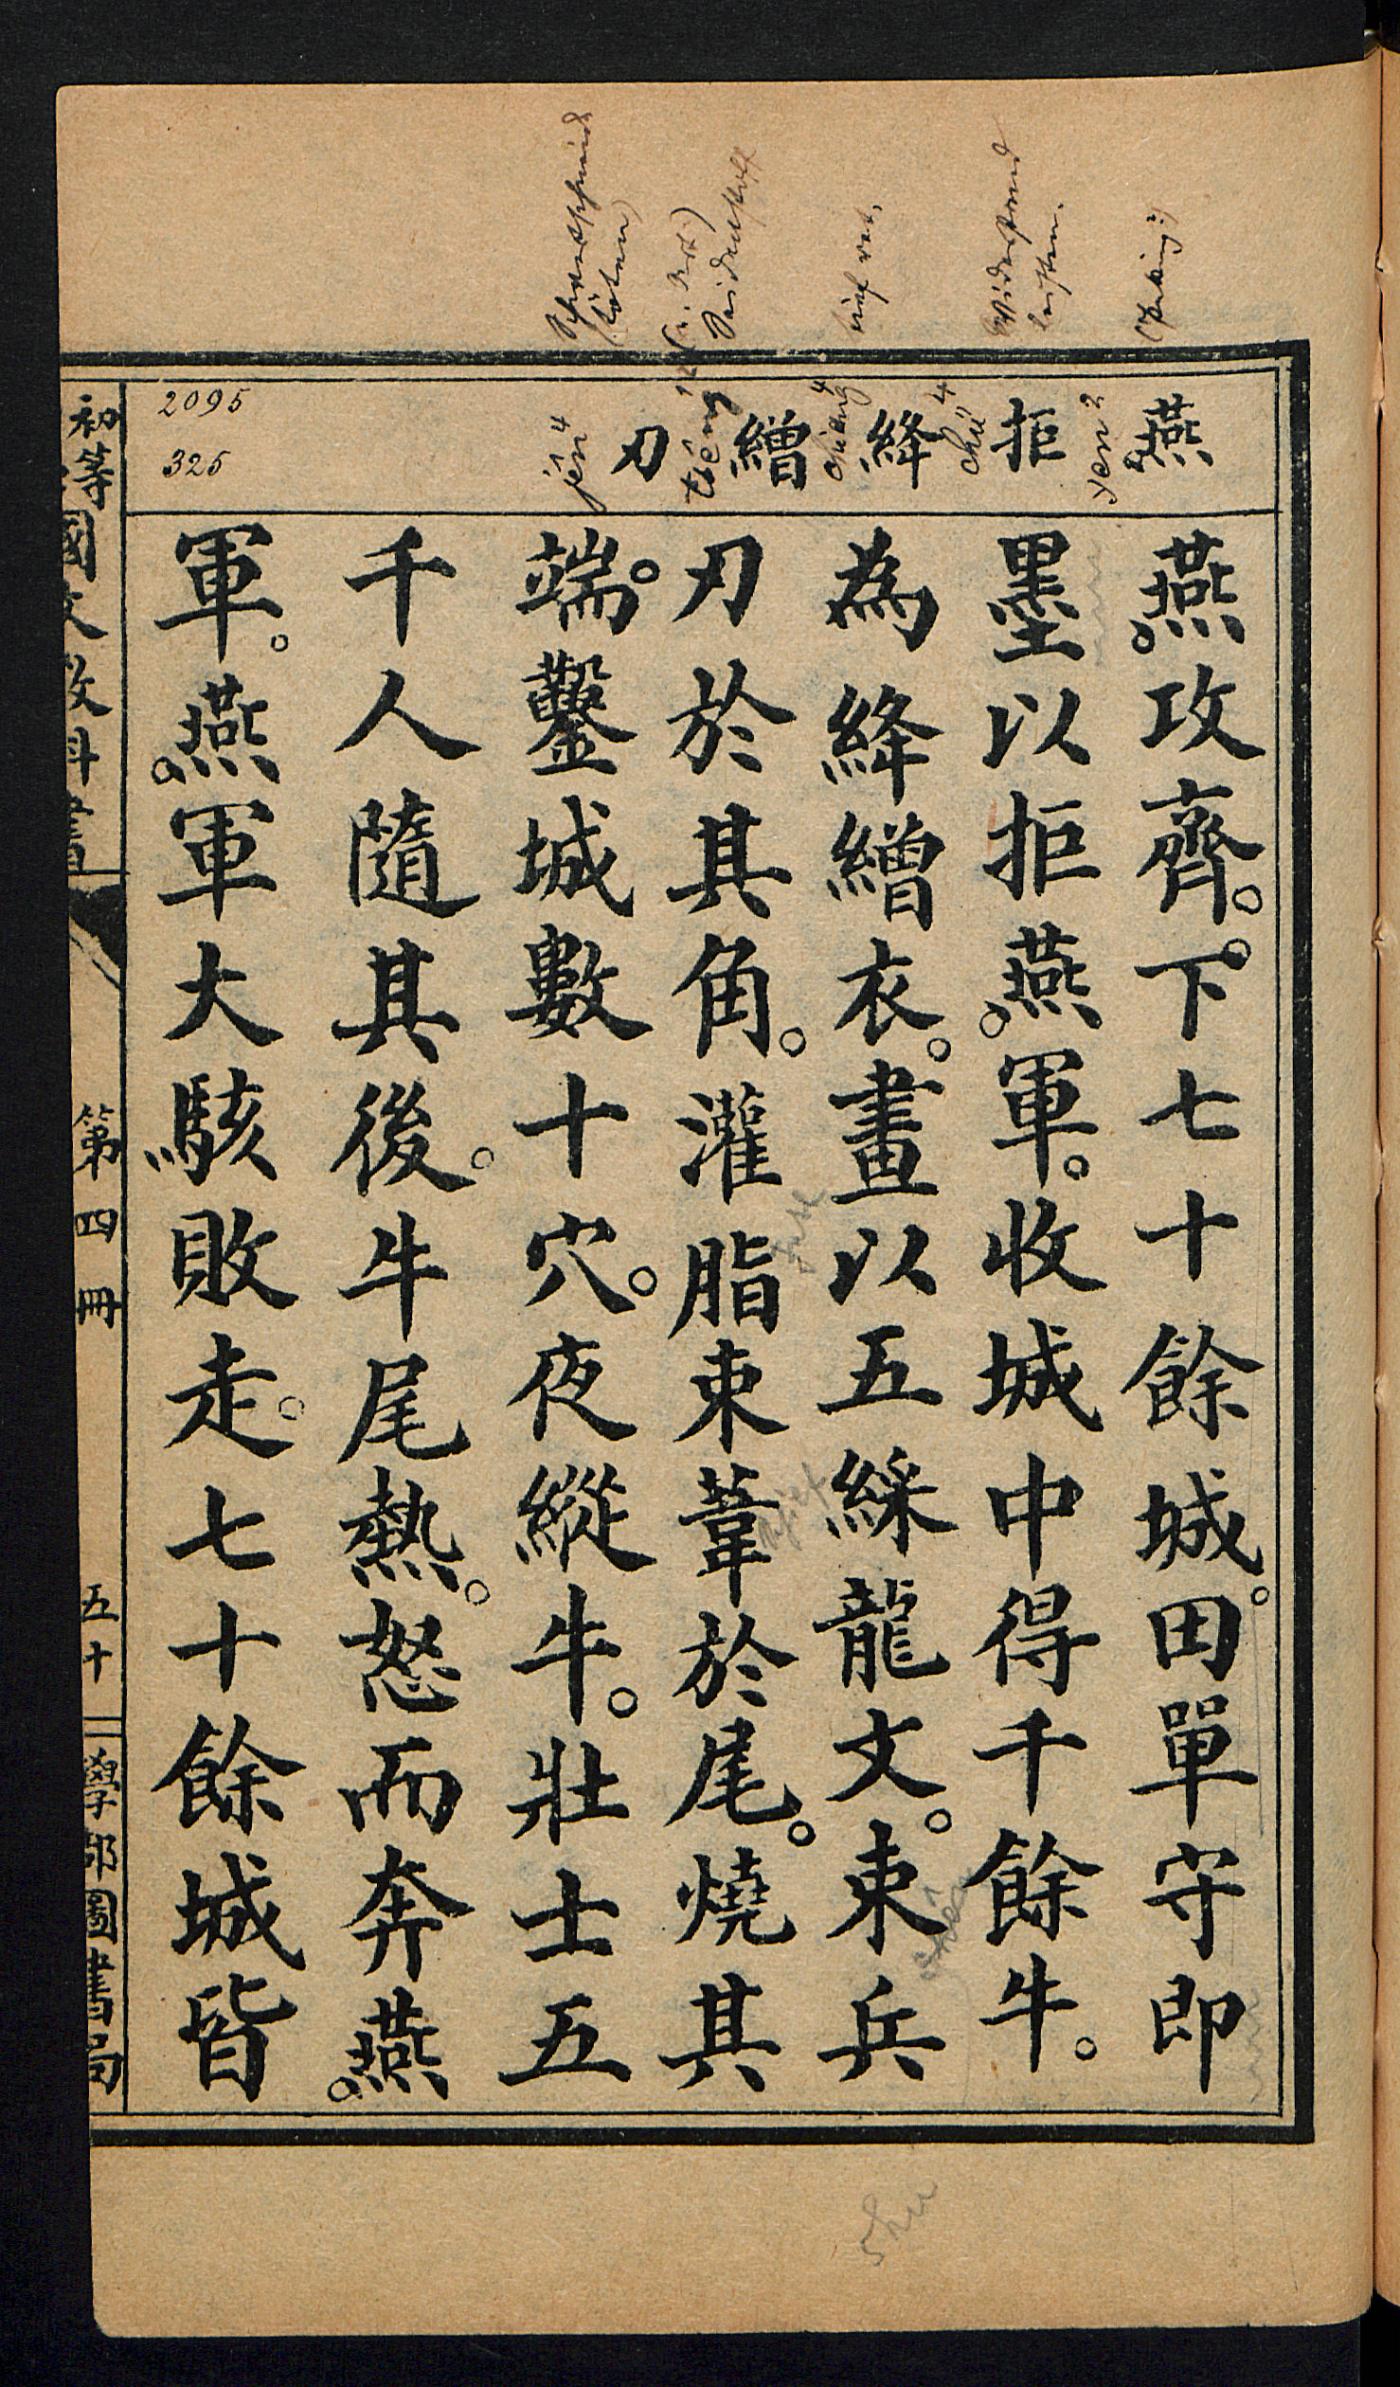 燕 拒 絳 繒 刃
yen²
chü⁴
chiang⁴
tsêng¹
jên⁴
2095
325
燕攻齊。下七十餘城。田單守即
墨以拒燕軍。收城中得千餘牛。
為絳繒衣。畫以五綵龍文。束兵
刃於其角。灌脂束葦於尾。燒其
端。鑿城數十穴。夜縱牛。壯士五
千人隨其後。牛尾熱。怒而奔燕
軍。燕軍大駭敗走。七十餘城皆
初等國文教科書
第四冊
五十
學部圖書局
shu